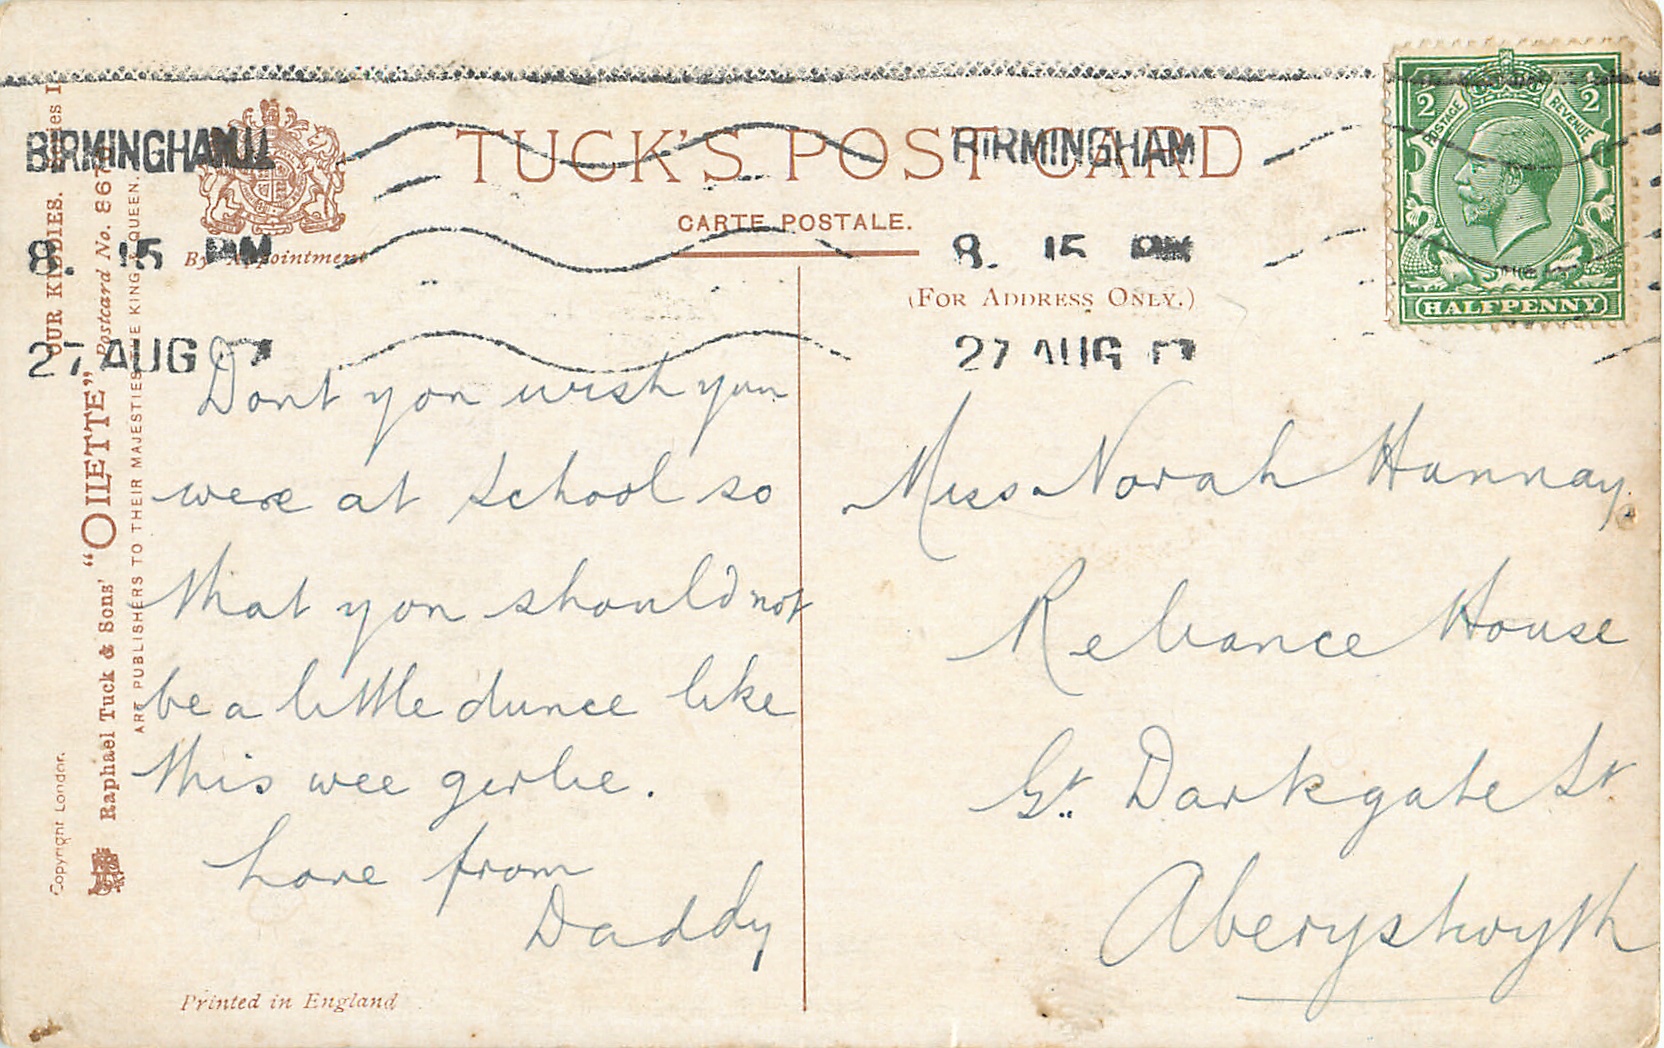 BIRMINGHAM
8. 15 PM
27 AUG
TUCK'S POST CARD
CARTE POSTALE.
By Appointment
(FOR ADDRESS ONLY.)
BIRMINGHAM
8. 15 PM
27 AUG
POSTAGE
REVENUE
½
½
HALFPENNY
OUR KIDDIES.
Postcard No. 867
Raphael Tuck & Sons' "OILETTE"
ART PUBLISHERS TO THEIR MAJESTIES THE KING & QUEEN.
Copyright London.
Dont you wish you
were at school so
that you should not
be a little dunce like
this wee girlie.
Love from
Daddy
Printed in England
Miss Norah Hannay.
Reliance House
Gt. Darkgate St
Aberystwyth